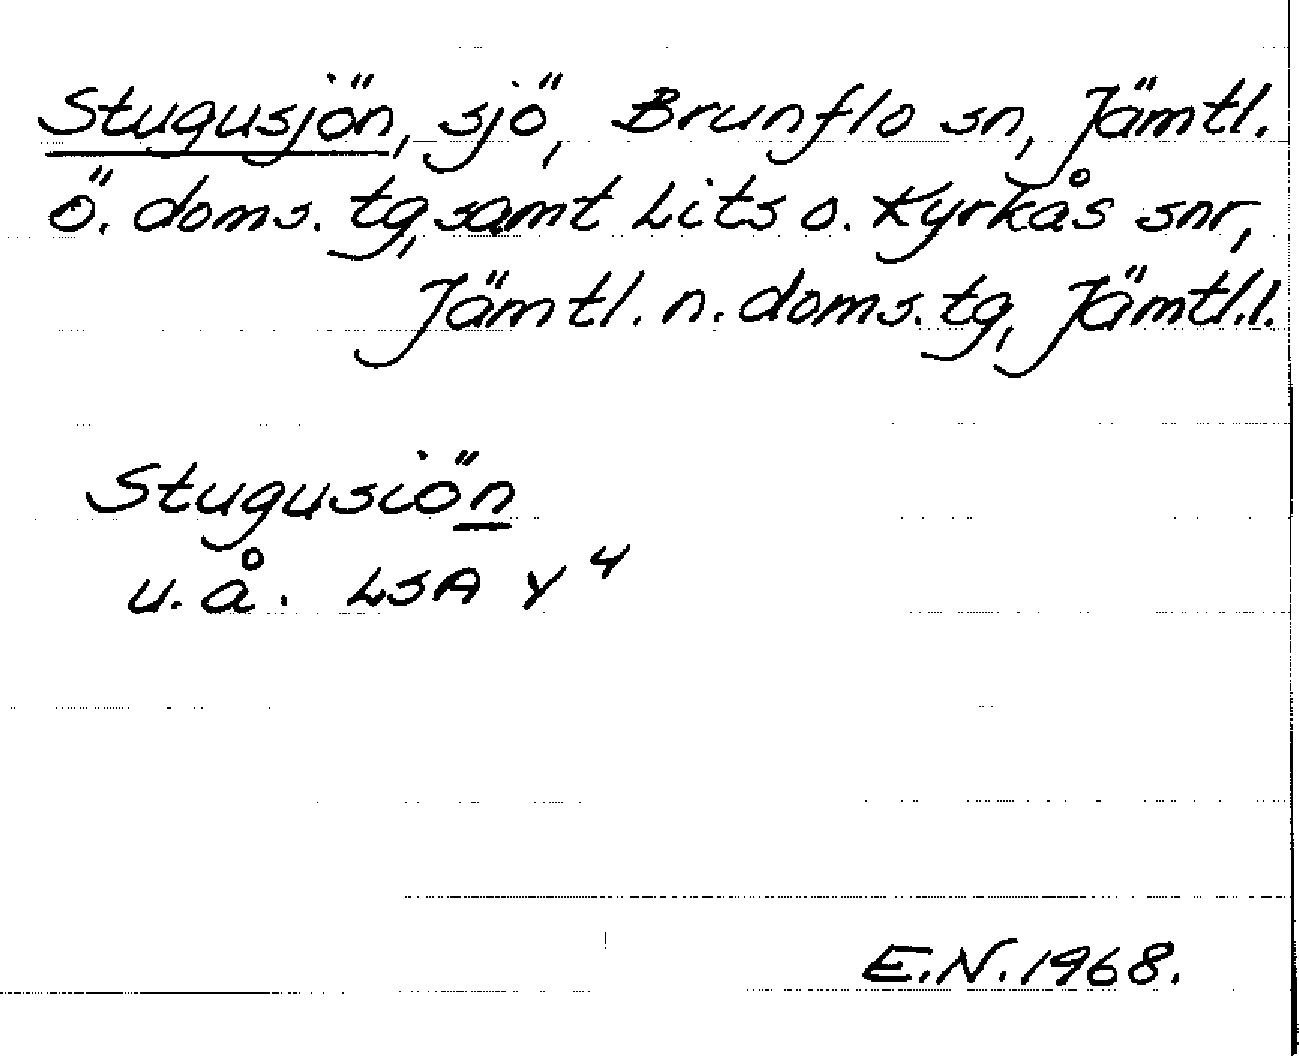 Stugusjön, sjö, Brunflo sn, Jämtl.
ö. doms. tg, samt Lits o. Kyrkås snr,
Jämtl. n. doms. tg, Jämtl.l.
Stugusiön
u.å. LSA Y 4
E.N. 1968.